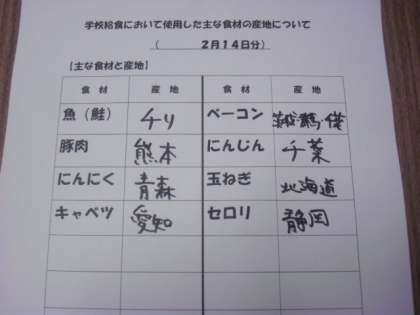 学校給食において使用した主な食材の産地について
（ 2月14日分）
【主な食材と産地】
食材 産地 食材 産地
魚（鮭） チリ ベーコン
豚肉 熊本 にんじん 千葉
にんにく 青森 玉ねぎ 北海道
キャベツ 愛知 セロリ 静岡